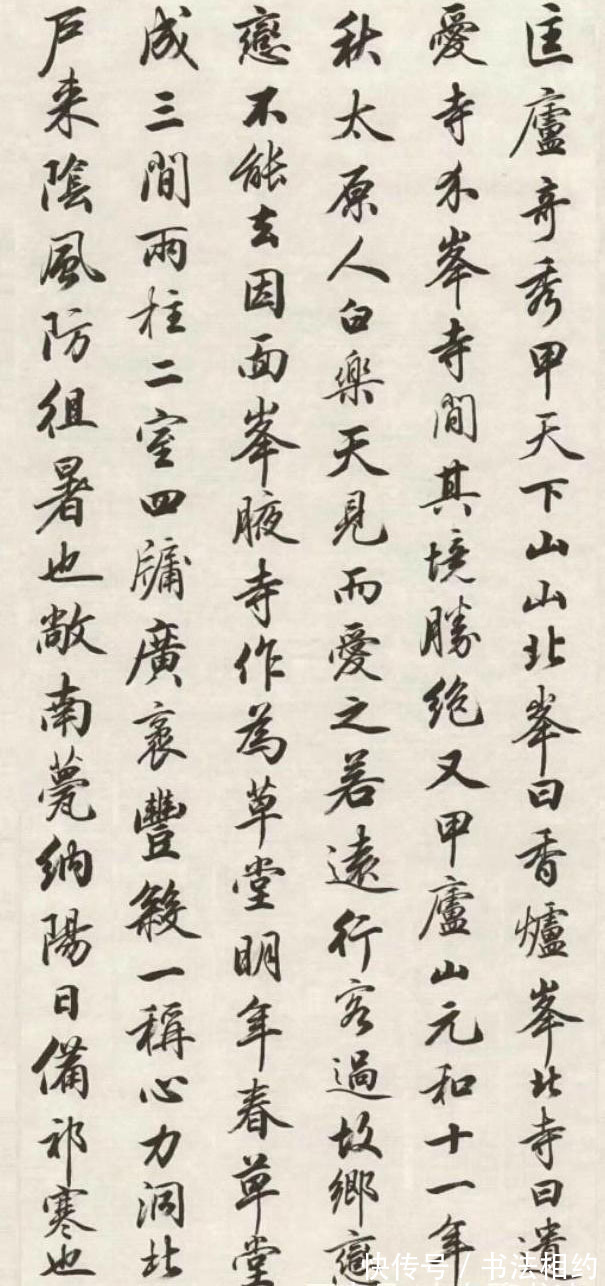 匡廬奇秀甲天下山山北峯曰香爐峯北寺曰遺
愛寺介峯寺間其境勝絶又甲廬山元和十一年
秋太原人白樂天見而愛之若遠行客過故鄉戀
戀不能去因面峯腋寺作為草堂明年春草堂
成三間兩柱二室四牖廣袤豐殺一稱心力洞北
戶来陰風防徂暑也敞南甍納陽日備祁寒也
快传号 / 书法相约